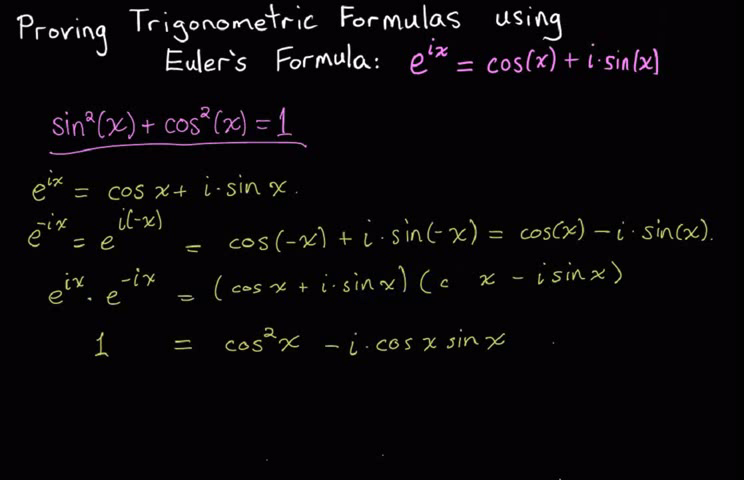 Proving Trigonometric Formulas using
Euler's Formula: e^{ix} = cos(x) + i·sin(x)
sin²(x) + cos²(x) = 1
e^{ix} = cos x + i·sin x.
e^{-ix} = e^{i(-x)} = cos(-x) + i·sin(-x) = cos(x) - i·sin(x).
e^{ix}·e^{-ix} = (cos x + i·sin x)(c x - i sin x)
1 = cos²x - i·cos x sin x